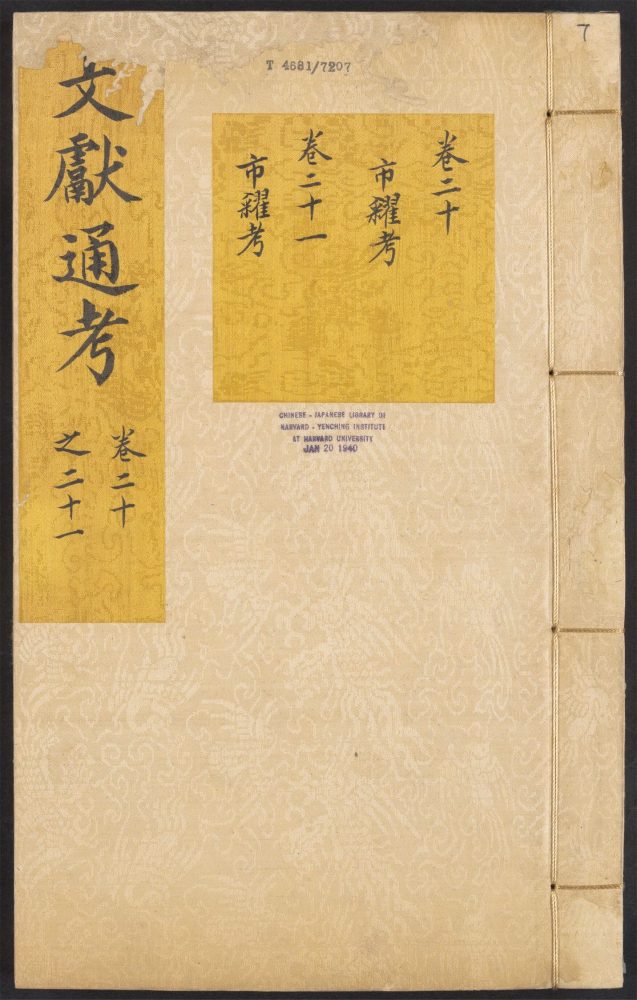 7
T 4681/7207
卷二十
市糴考
卷二十一
市糴考
文獻通考
卷二十
之二十一
CHINESE - JAPANESE LIBRARY OF
HARVARD - YENCHING INSTITUTE
AT HARVARD UNIVERSITY
JAN 20 1940